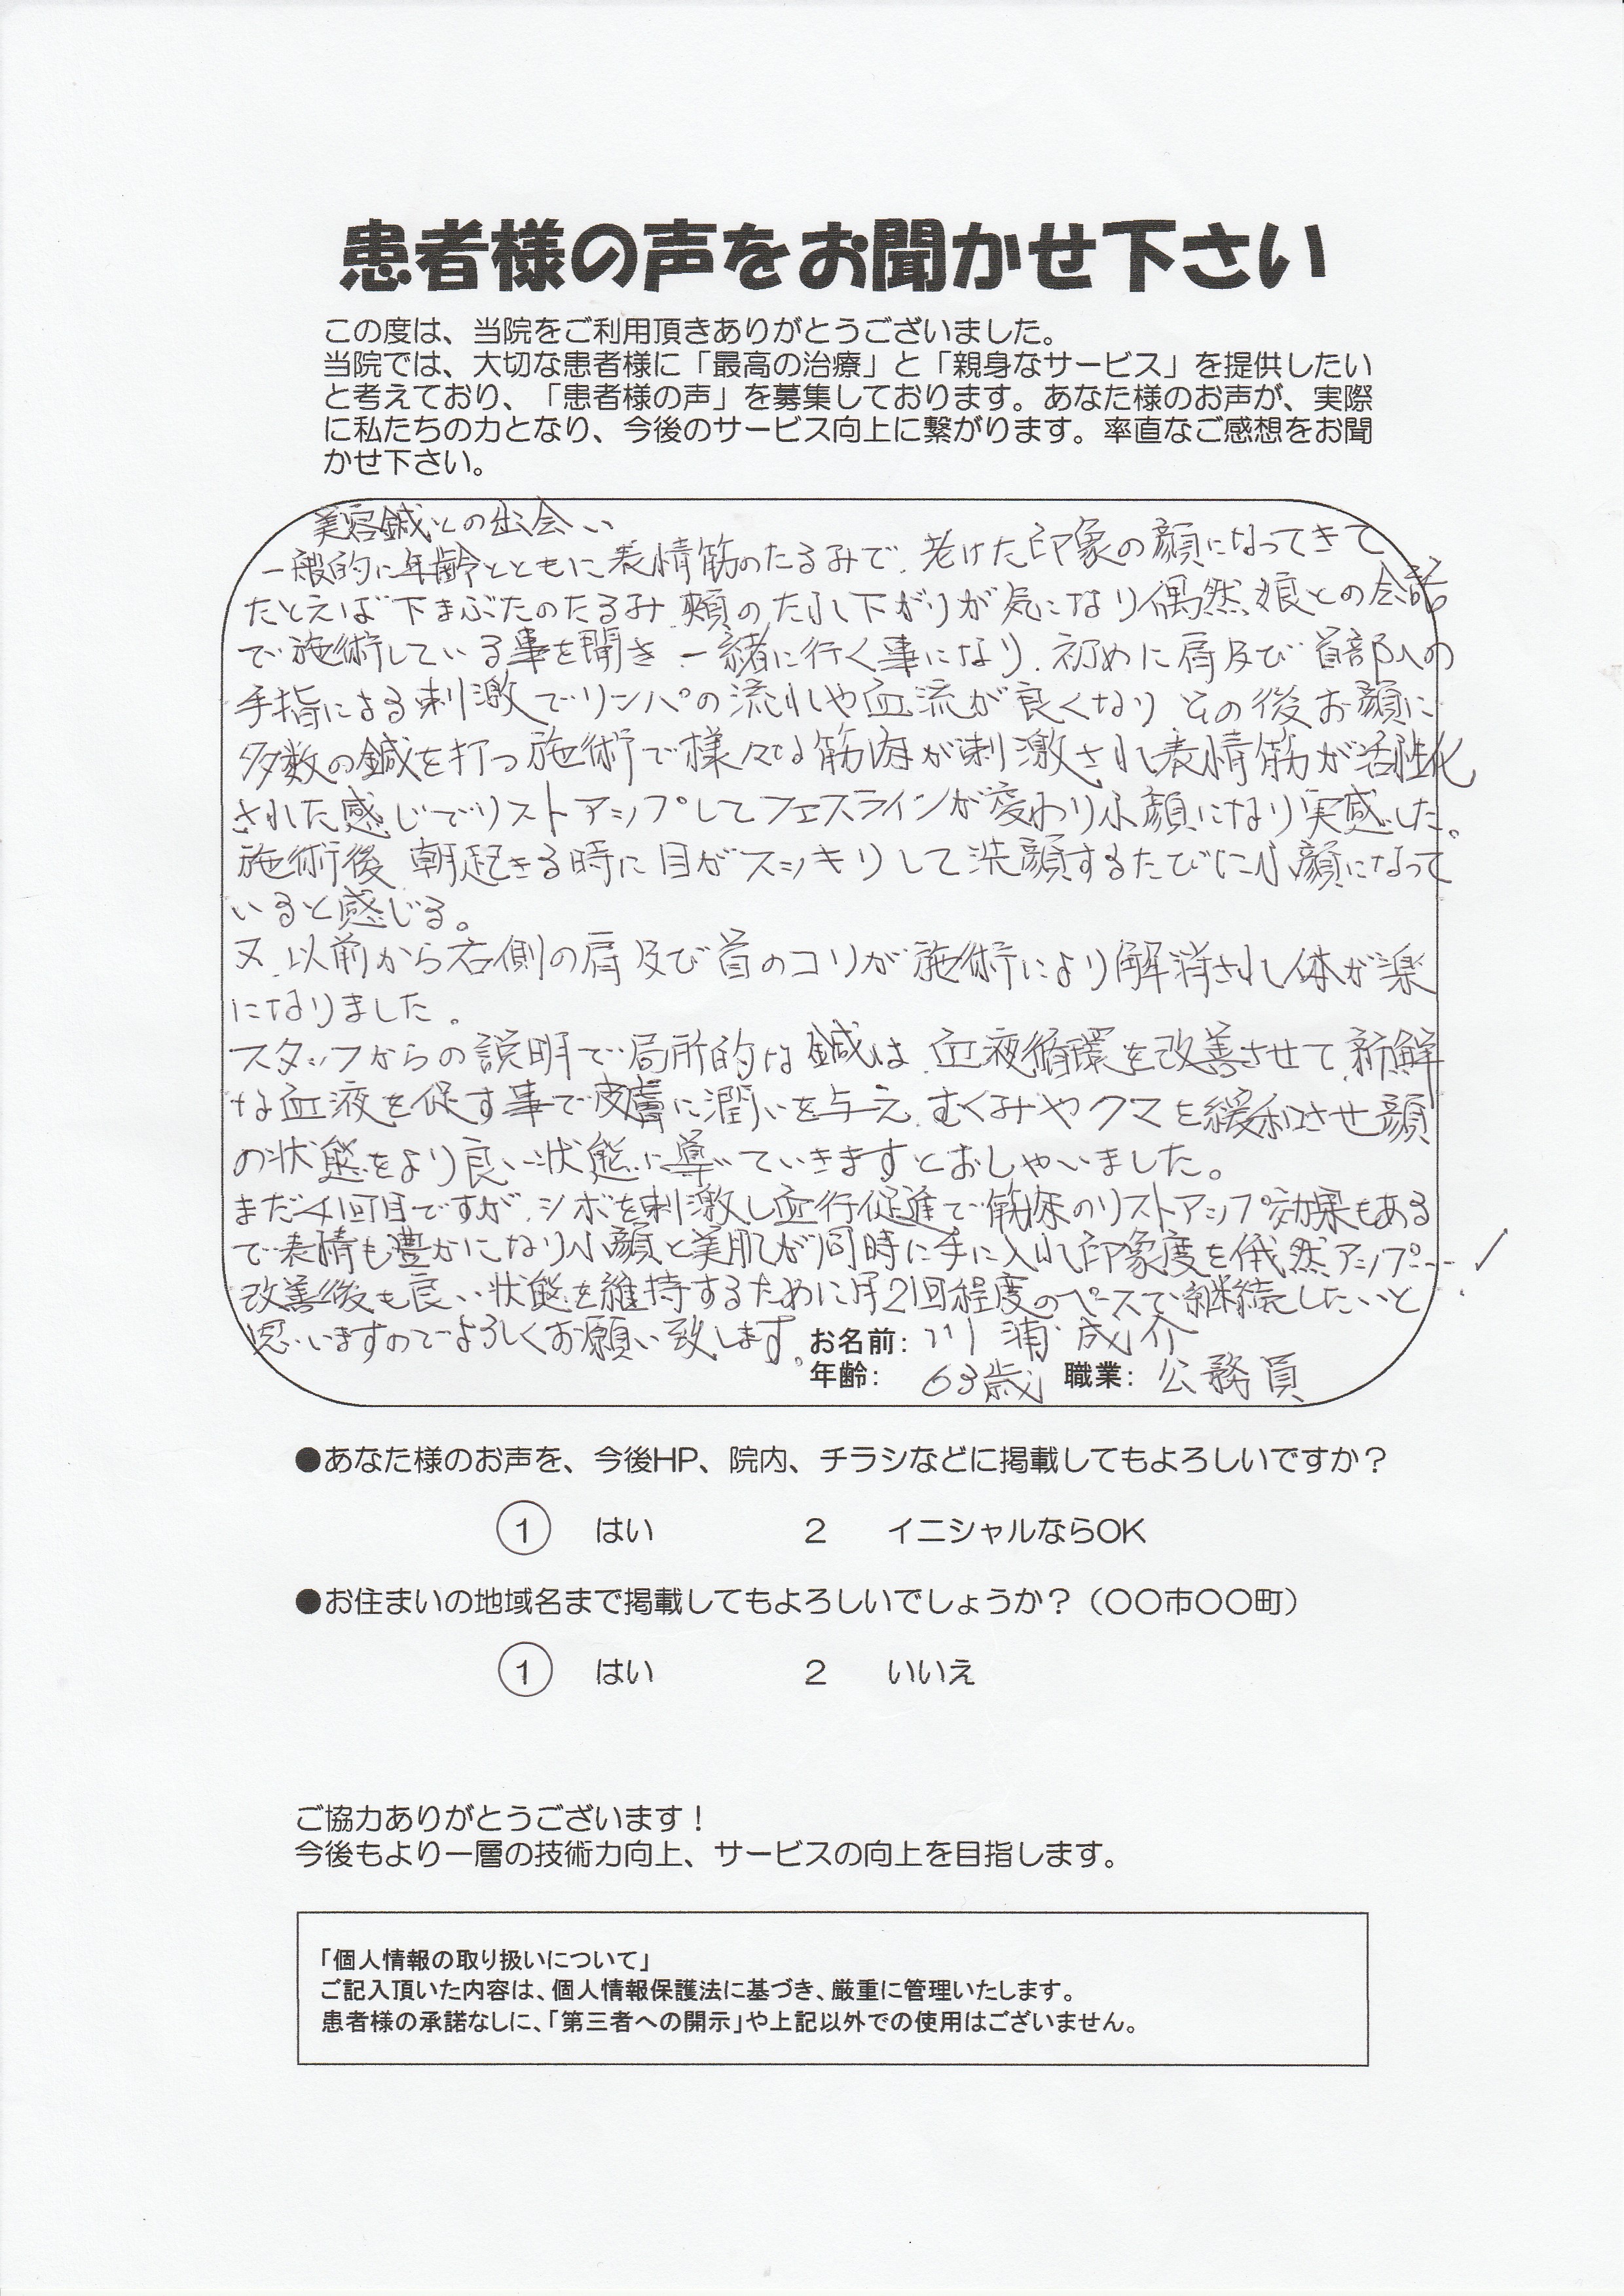 患者様の声をお聞かせ下さい
この度は、当院をご利用頂きありがとうございました。
当院では、大切な患者様に「最高の治療」と「親身なサービス」を提供したい
と考えており、「患者様の声」を募集しております。あなた様のお声が、実際
に私たちの力となり、今後のサービス向上に繋がります。率直なご感想をお聞
かせ下さい。
美容鍼との出会い
一般的に年齢とともに表情筋のたるみで、老けた印象の顔になってきて
たとえば下まぶたのたるみ、頬のたれ下がりが気になり偶然、娘との会話
で施術している事を聞き、一緒に行く事になり、初めに肩及び首部への
手指による刺激でリンパの流れや血流が良くなり その後お顔に
多数の鍼を打つ施術で様々な筋肉が刺激され表情筋が活性化
された感じでリストアップしてフェスラインが変わり小顔になり実感した。
施術後 朝起きる時に目がスッキリして洗顔するたびに小顔になって
いると感じる。
又、以前から右側の肩及び首のコリが施術により解消され体が楽
になりました。
スタッフからの説明で局所的な鍼は、血液循環を改善させて、新鮮
な血液を促す事で皮膚に潤いを与え、むくみやクマを緩和させ顔
の状態をより良い状態に導いていきますとおしゃいました。
まだ4回目ですが、シボを刺激し血行促進で筋体のリストアップ効果もある
で表情も豊かになり小顔と美肌が同時に手に入れ印象度を俄然アップ…
改善後も良い状態を維持するために月2回程度のペースで継続したいと
思いますのでよろしくお願い致します。
お名前: 川浦 成介
年齢: 63歳 職業: 公務員
●あなた様のお声を、今後HP、院内、チラシなどに掲載してもよろしいですか?
1 はい 2 イニシャルならOK
●お住まいの地域名まで掲載してもよろしいでしょうか?(〇〇市〇〇町)
1 はい 2 いいえ
ご協力ありがとうございます!
今後もより一層の技術力向上、サービスの向上を目指します。
「個人情報の取り扱いについて」
ご記入頂いた内容は、個人情報保護法に基づき、厳重に管理いたします。
患者様の承諾なしに、「第三者への開示」や上記以外での使用はございません。